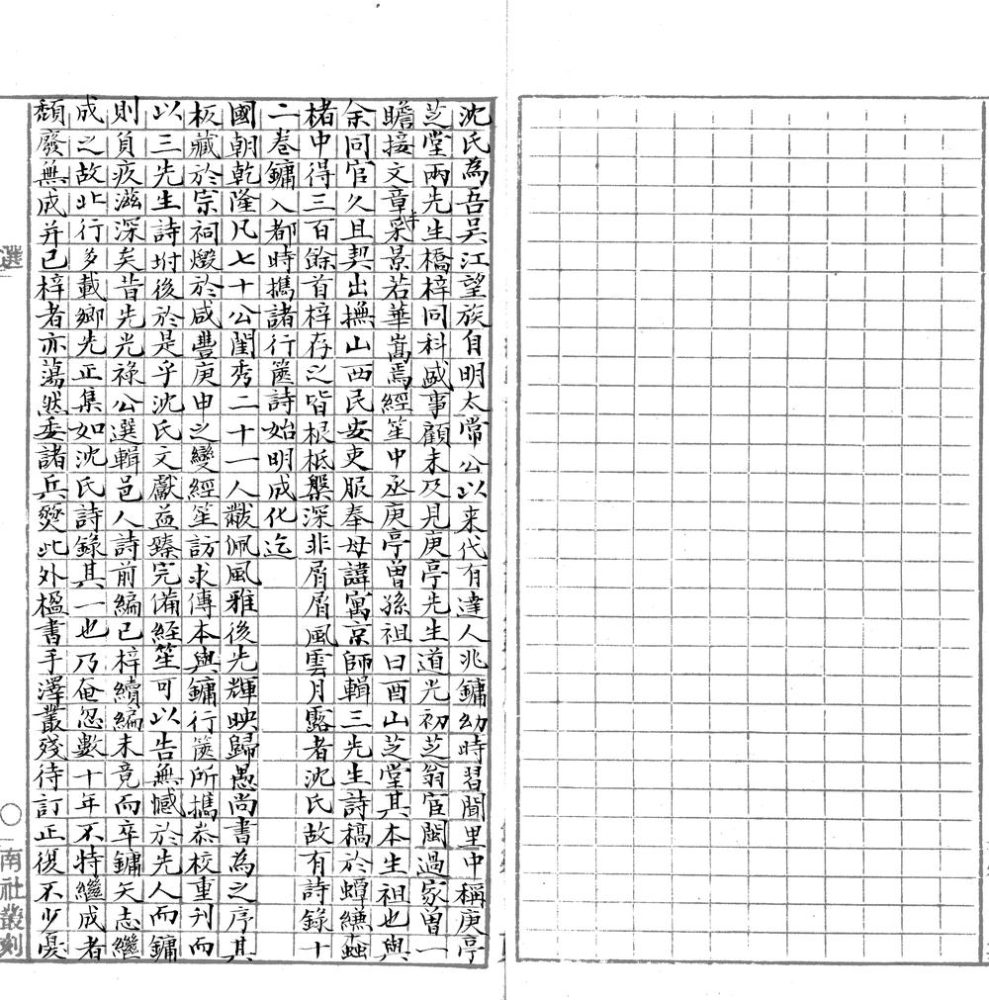 沈氏為吾吴江望族自明太常公以来代有達人兆鏞幼時習聞里中稱庚亭
芝堂兩先生橋梓同科盛事顧未及見庚亭先生道光初芝翁官閩過家曾一
瞻接文章丰采景若華嵩焉經笙中丞庚亭曾孫祖曰酉山芝堂其本生祖也與
余同官久且契出撫山西民安吏服奉母諱寓京師輯三先生詩稿於蟫縑蟲
楮中得三百餘首梓存之皆根柢槃深非屑屑風雲月露者沈氏故有詩錄十
二卷鏞入都時攜諸行篋詩始明成化迄
國朝乾隆凡七十公閨秀二十一人黻佩風雅後光輝映歸愚尚書為之序其
板藏於宗祠燬於咸豐庚申之變經笙訪求傳本與鏞行篋所攜恭校重刊而
以三先生詩坿後於是乎沈氏文獻益臻完備經笙可以告無憾於先人而鏞
則負疚滋深矣昔先光祿公選輯邑人詩前編已梓續編未竟而卒鏞矢志繼
成之故北行多載鄉先正集如沈氏詩錄其一也乃奄忽數十年不特繼成者
頹廢無成并已梓者亦蕩然委諸兵燹此外楹書手澤叢殘待訂正復不少憂
選
〇
南社叢刻